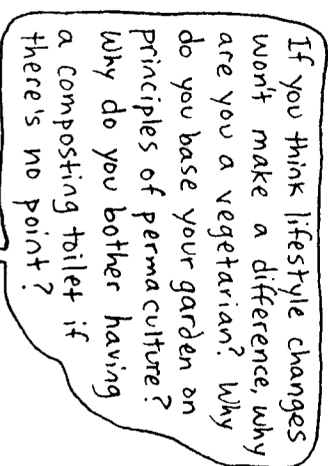 If you think lifestyle changes
won't make a difference, why
are you a vegetarian? Why
do you base your garden on
principles of permaculture?
Why do you bother having
a composting toilet if
there's no point?